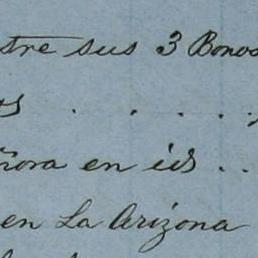 stre sus 3 Bonos
os . . . . .
ñora en ids . .
en La Arizona